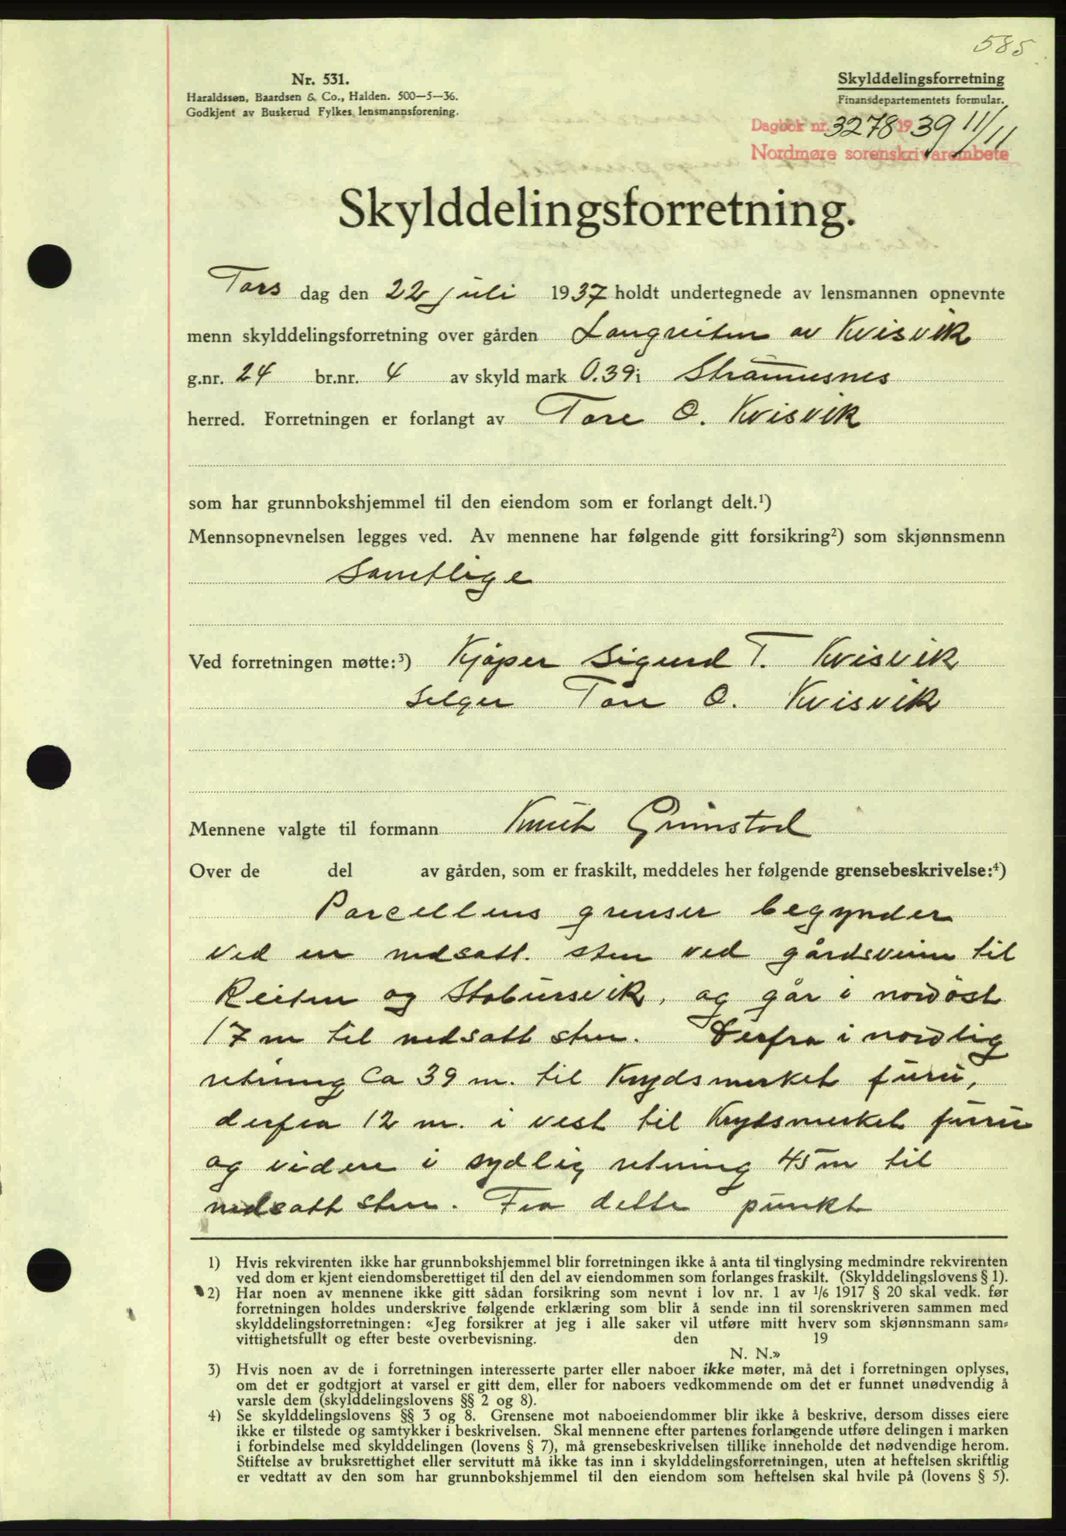 585
Nr. 531.
Haraldssen, Baardsen & Co., Halden. 500—5—36.
Godkjent av Buskerud Fylkes lensmannsforening.
Skylddelingsforretning
Finansdepartementets formular.
Dagbok nr. 3278 1939 11/11
Nordmøre sorenskrivarembete
Skylddelingsforretning.
Tors dag den 22 juli 1937 holdt undertegnede av lensmannen opnevnte
menn skylddelingsforretning over gården Langreiten av Kvisvik
g.nr. 24 br.nr. 4 av skyld mark 0.39 i Straumsnes
herred. Forretningen er forlangt av Tore O. Kvisvik
som har grunnbokshjemmel til den eiendom som er forlangt delt.¹)
Mennsopnevnelsen legges ved. Av mennene har følgende gitt forsikring²) som skjønnsmenn
Samtlige
Ved forretningen møtte:³) Kjøper Sigurd T. Kvisvik
Selger Tore O. Kvisvik
Mennene valgte til formann Knut Grimstad
Over de del av gården, som er fraskilt, meddeles her følgende grensebeskrivelse:⁴)
Parcellens grenser begynder
ved en nedsatt sten ved gårdsveien til
Reiten og Stabursvik, og går i nordöst
17 m til nedsatt sten. Derfra i nordlig
retning ca 39 m. til Krydsmerket furu,
derfra 12 m. i vest til Krydsmerket furu
og videre i sydlig retning 45 m til
nedsatt sten. Fra dette punkt
1) Hvis rekvirenten ikke har grunnbokshjemmel blir forretningen ikke å anta til tinglysing medmindre rekvirenten
ved dom er kjent eiendomsberettiget til den del av eiendommen som forlanges fraskilt. (Skylddelingslovens § 1).
2) Har noen av mennene ikke gitt sådan forsikring som nevnt i lov nr. 1 av 1/6 1917 § 20 skal vedk. før
forretningen holdes underskrive følgende erklæring som blir å sende inn til sorenskriveren sammen med
skylddelingsforretningen: «Jeg forsikrer at jeg i alle saker vil utføre mitt hverv som skjønnsmann sam-
vittighetsfullt og efter beste overbevisning. den 19
N. N.»
3) Hvis noen av de i forretningen interesserte parter eller naboer ikke møter, må det i forretningen oplyses,
om det er godtgjort at varsel er gitt dem, eller for naboers vedkommende om det er funnet unødvendig å
varsle dem (skylddelingslovens §§ 2 og 8).
4) Se skylddelingslovens §§ 3 og 8. Grensene mot naboeiendommer blir ikke å beskrive, dersom disses eiere
ikke er tilstede og samtykker i beskrivelsen. Skal mennene efter partenes forlangende utføre delingen i marken
i forbindelse med skylddelingen (lovens § 7), må grensebeskrivelsen tillike inneholde det nødvendige herom.
Stiftelse av bruksrettighet eller servitutt må ikke tas inn i skylddelingsforretningen, uten at heftelsen skriftlig
er vedtatt av den som har grunnbokshjemmel til den eiendom som heftelsen skal hvile på (lovens § 5).